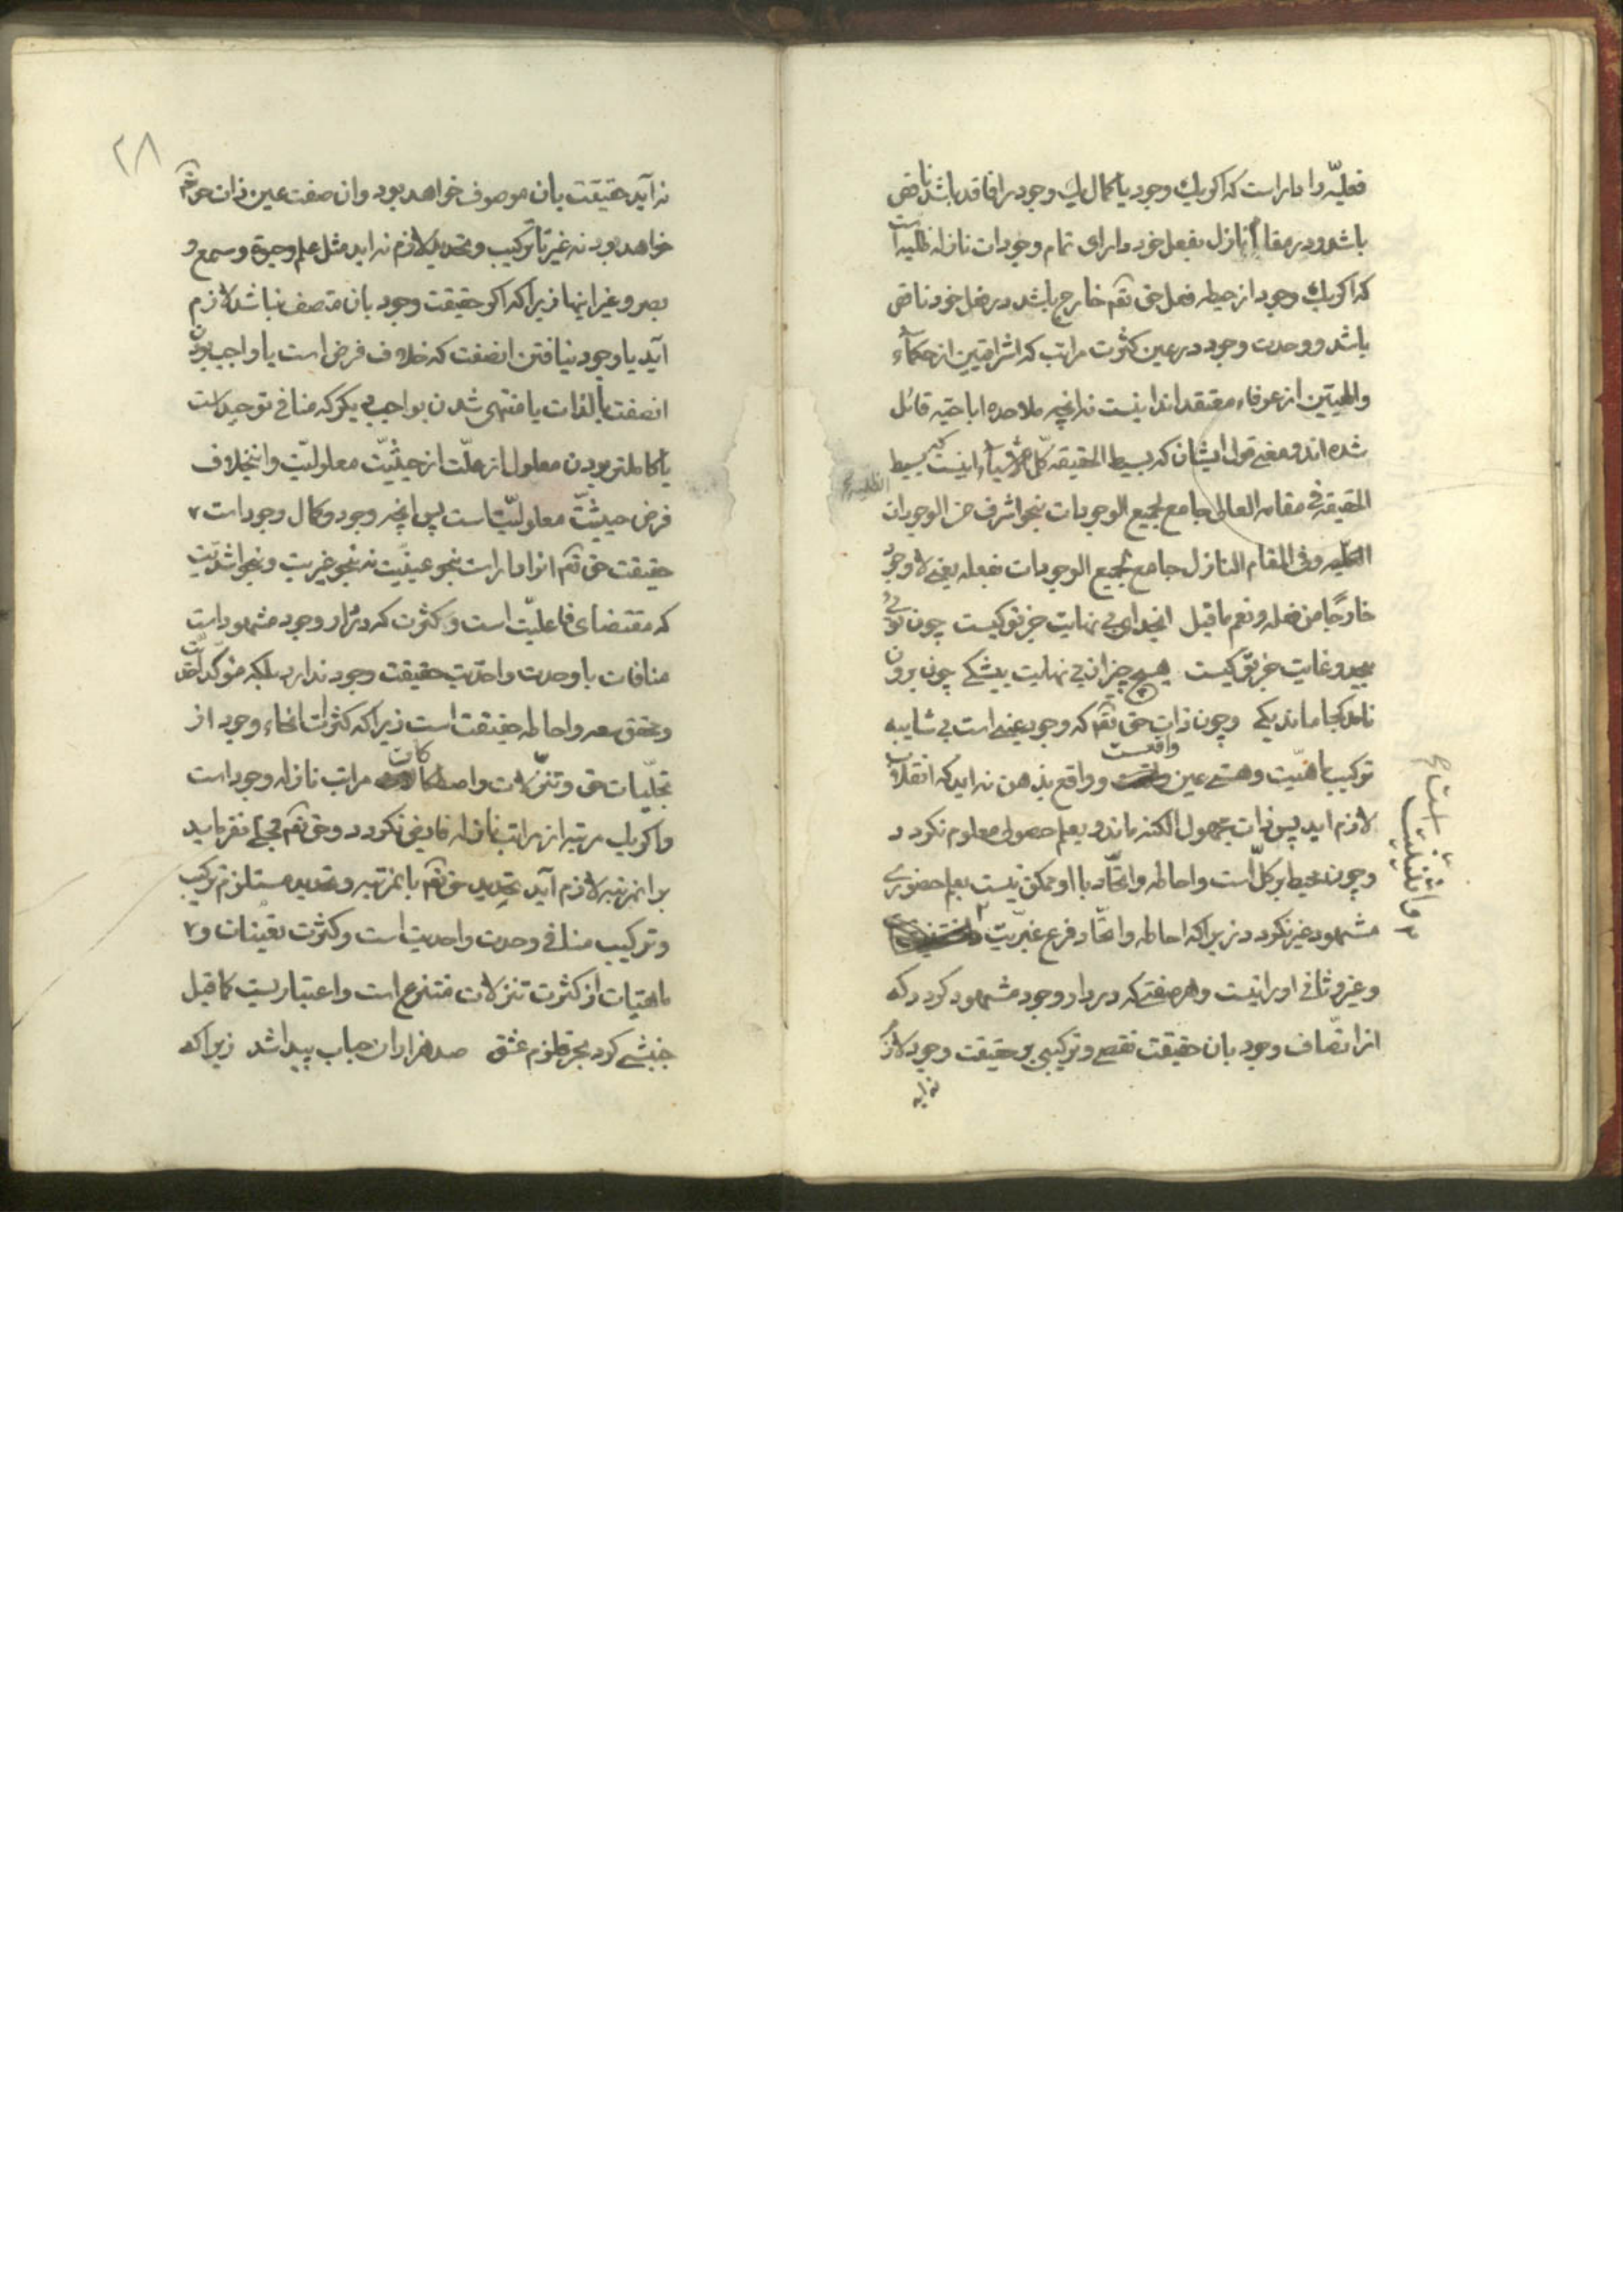 فعلیّه را داراست که اکر یك وجود یا کمال یك وجود را فاقد باشد ناقص
باشد و در مقام نازل بفعل خود دارای تمام وجودات نازله ظلیه است
که اکر یك وجود از حیطه فعل حق تعم خارج باشد در فعل خود ناقص
باشد و وحدت وجود در عین کثرت مراتب که اشراقیین از حکماء
والهیین از عرفاء معتقدند اینست نه آنچه ملاحده اباحیه قائل
شده اند و معنی قول ایشان که بسیط الحقیقه کل الاشیاء اینست که بسیط
الحقیقة فی مقامه العالی جامع لجمیع الوجودات بنحو اشرف من الوجودات
الظلیه وفی المقام النازل جامع لجمیع الوجودات بفعله یعنی لا وجود
خارجًا من فعله و نعم ما قیل ایخدای بی نهایت جز تو کیست چون توئی
بیحد و غایت جز تو کیست هیچ چیز از بی نهایت بیشکی چون برون
نامد کجا ماند یکی وچون ذات حق تعم که وجود عینی است بی شایبه
ترکیب ماهیّت و هستی عین واقعست و واقع بذهن نه اید که انقلاب
لازم اید پس ذات مجهول الکنه ماند و بعلم حصولی معلوم نکردد
وچون محیط بر کلّ است و احاطه و اتّحاد با او ممکن نیست بعلم حضوری
مشهود غیر نکردد زیرا که احاطه و اتّحاد فرع غیریّت
وغیر و ثانی او را نیست و هر صفتی که در دار وجود مشهود کردد که
از اتّصاف وجود بان حقیقت نقص و ترکیبی بر حقیقت وجود لازم
نه اید
و اثنینیت
۲۸
نه آید حقیقت بان موصوف خواهد بود و ان صفت عین ذات حق تعم
خواهد بود نه غیر تا ترکیب و تحدید لازم نه اید مثل علم و حیوة و سمع و
بصر و غیر اینها زیرا که اکر حقیقت وجود بان متصف نباشد لازم
آید یا وجود نیافتن انصفت که خلاف فرض است یا واجب بودن
انصفت بالذات یا منتهی شدن بواجب دیکر که منافی توحید است
یا کاملتر بودن معلول از علّت از حیثیّت معلولیّت و اینخلاف
فرض حیثیّت معلولیّت است پس آنچه وجود و کمال وجود است
حقیقت حق تعم انرا داراست بنحو عینیّت نه بنحو غیریت و بنحو اشدیّت
که مقتضای فاعلیّت است و کثرت که در دار وجود مشهود است
منافات با وحدت واحدیت حقیقت وجود ندارد بلکه مؤکد احدیّت
و محقق سعه و احاطه حقیقت است زیرا که کثرات انحاء وجود از
تجلّیات حق و تنزّلات و اصطکاکات مراتب نازله وجود است
واکر یك مرتبه از مراتب نازله فایض نکردد و حق تعم تجلّی نفرماید
بر انمرتبه لازم آید تحدید حق تعم بانمرتبه و تحدید مستلزم ترکیب
و ترکیب منافی وحدت واحدیت است و کثرت تعینات و
ماهیّات از کثرت تنزلات منتزع است و اعتباریست کما قیل
جنبشی کرد بحر قلزم عشق صد هزاران حباب پیدا شد زیرا که